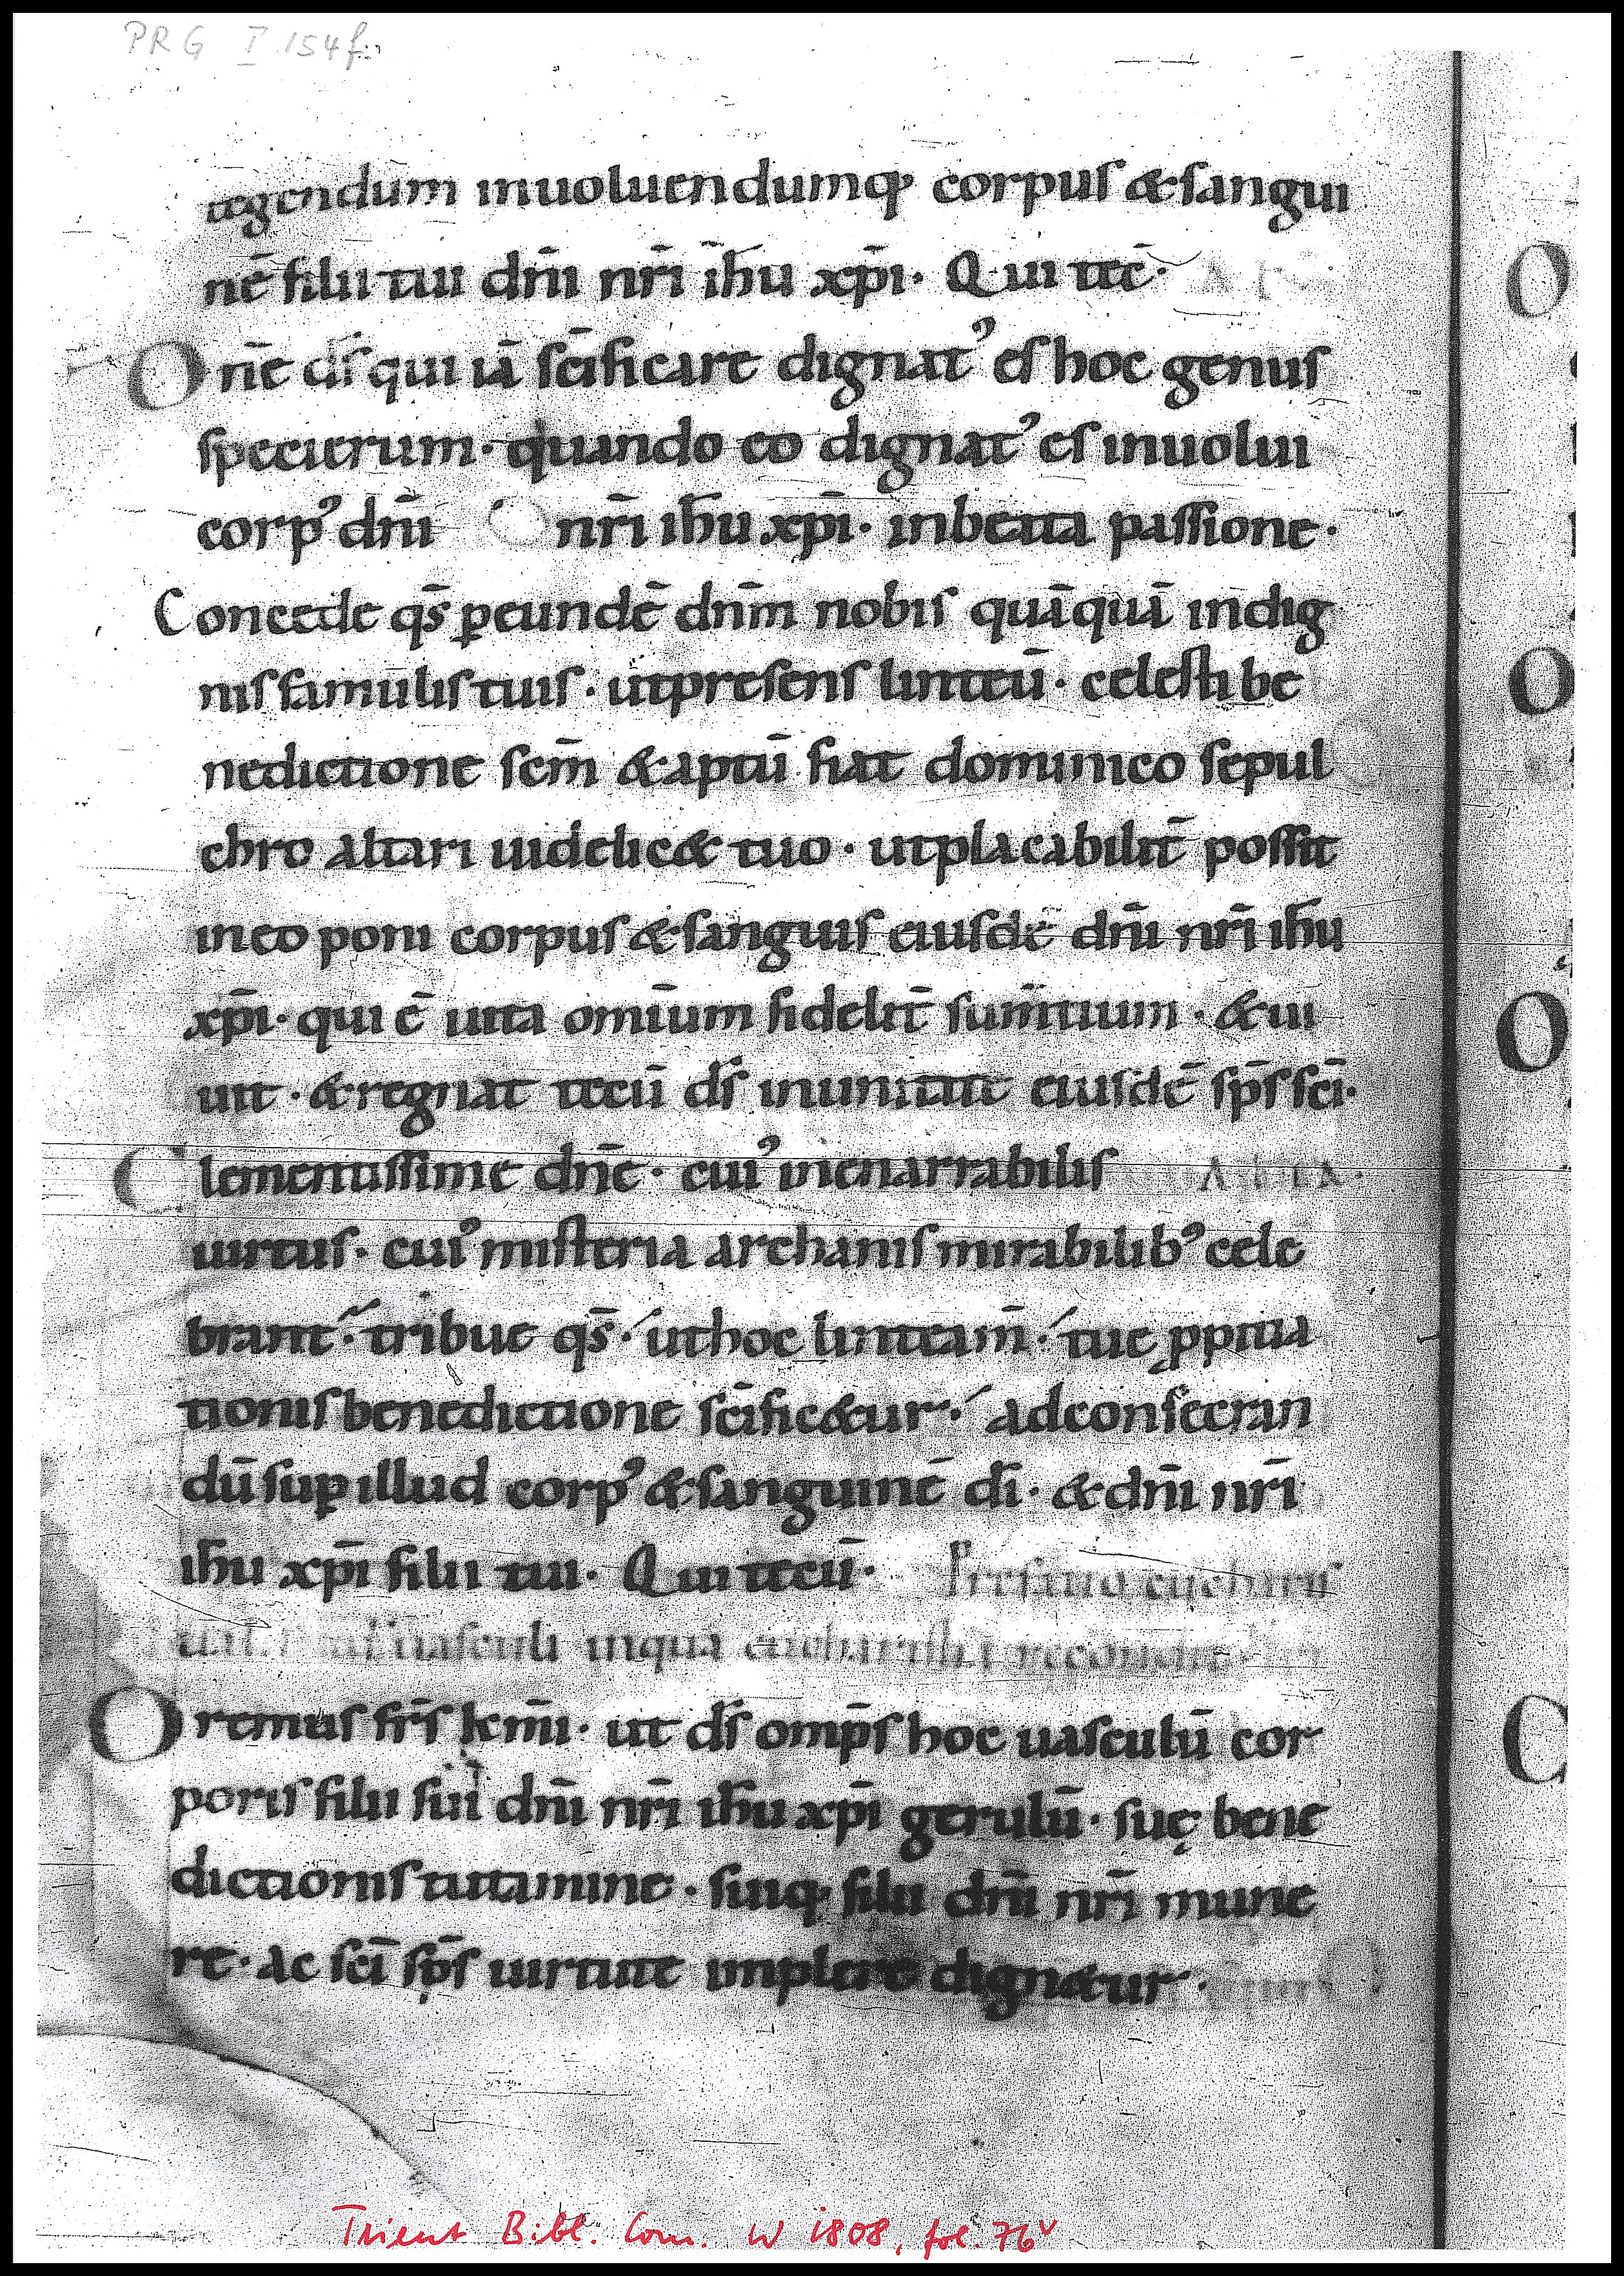 PRG I 154f.
tegendum inuoluendumq; corpus & sangui
nē filii tui dn̄i nr̄i ih̄u xp̄i. Qui tec̄.
One ds̄ qui iā sc̄ificare dignatꝰ es hoc genus
specierum. quando eo dignatꝰ es inuolui
corpꝰ dn̄i nr̄i ih̄u xp̄i. in beata passione.
Concede qs̄ ꝑ eundē dn̄m nobis quāquā indig
nis famulis tuis. ut presens linteū. celesti be
nedictione scm̄ & aptū fiat dominico sepul
chro altari uidelic& tuo. ut placabilit̄ possit
in eo poni corpus & sanguis eiusdē dn̄i nr̄i ih̄u
xp̄i. qui ē uita omīum fidelit̄ sumtium. & ui
uit. & regnat tecū ds̄ in unitate eiusdē sp̄s sc̄i.
Clementissime dn̄e. cuiꝰ inenarrabilis Alia.
uirtus. cuiꝰ misteria archanis mirabilibꝰ cele
brant̄. tribue qs̄. ut hoc linteam̄. tuę ꝓpitia
tionis benedictione sc̄ific&ur. ad consecran
dū suꝑ illud corpꝰ & sanguinē dī. & dn̄i nr̄i
ih̄u xp̄i filii tui. Qui tecū. Prefatio eucharis
uasculi in qua eucharistia recondit
Oremus fr̄s km̄i. ut ds̄ omp̄s hoc uasculū cor
poris filii sui dn̄i nr̄i ih̄u xp̄i gerulū. suę bene
dictionis tutamine. suiq; filii dn̄i nr̄i mune
re. ac sc̄i sp̄s uirtute implere dign&ur.
O
O
O
C
Trient Bibl. Com. W 1808, fol. 76v